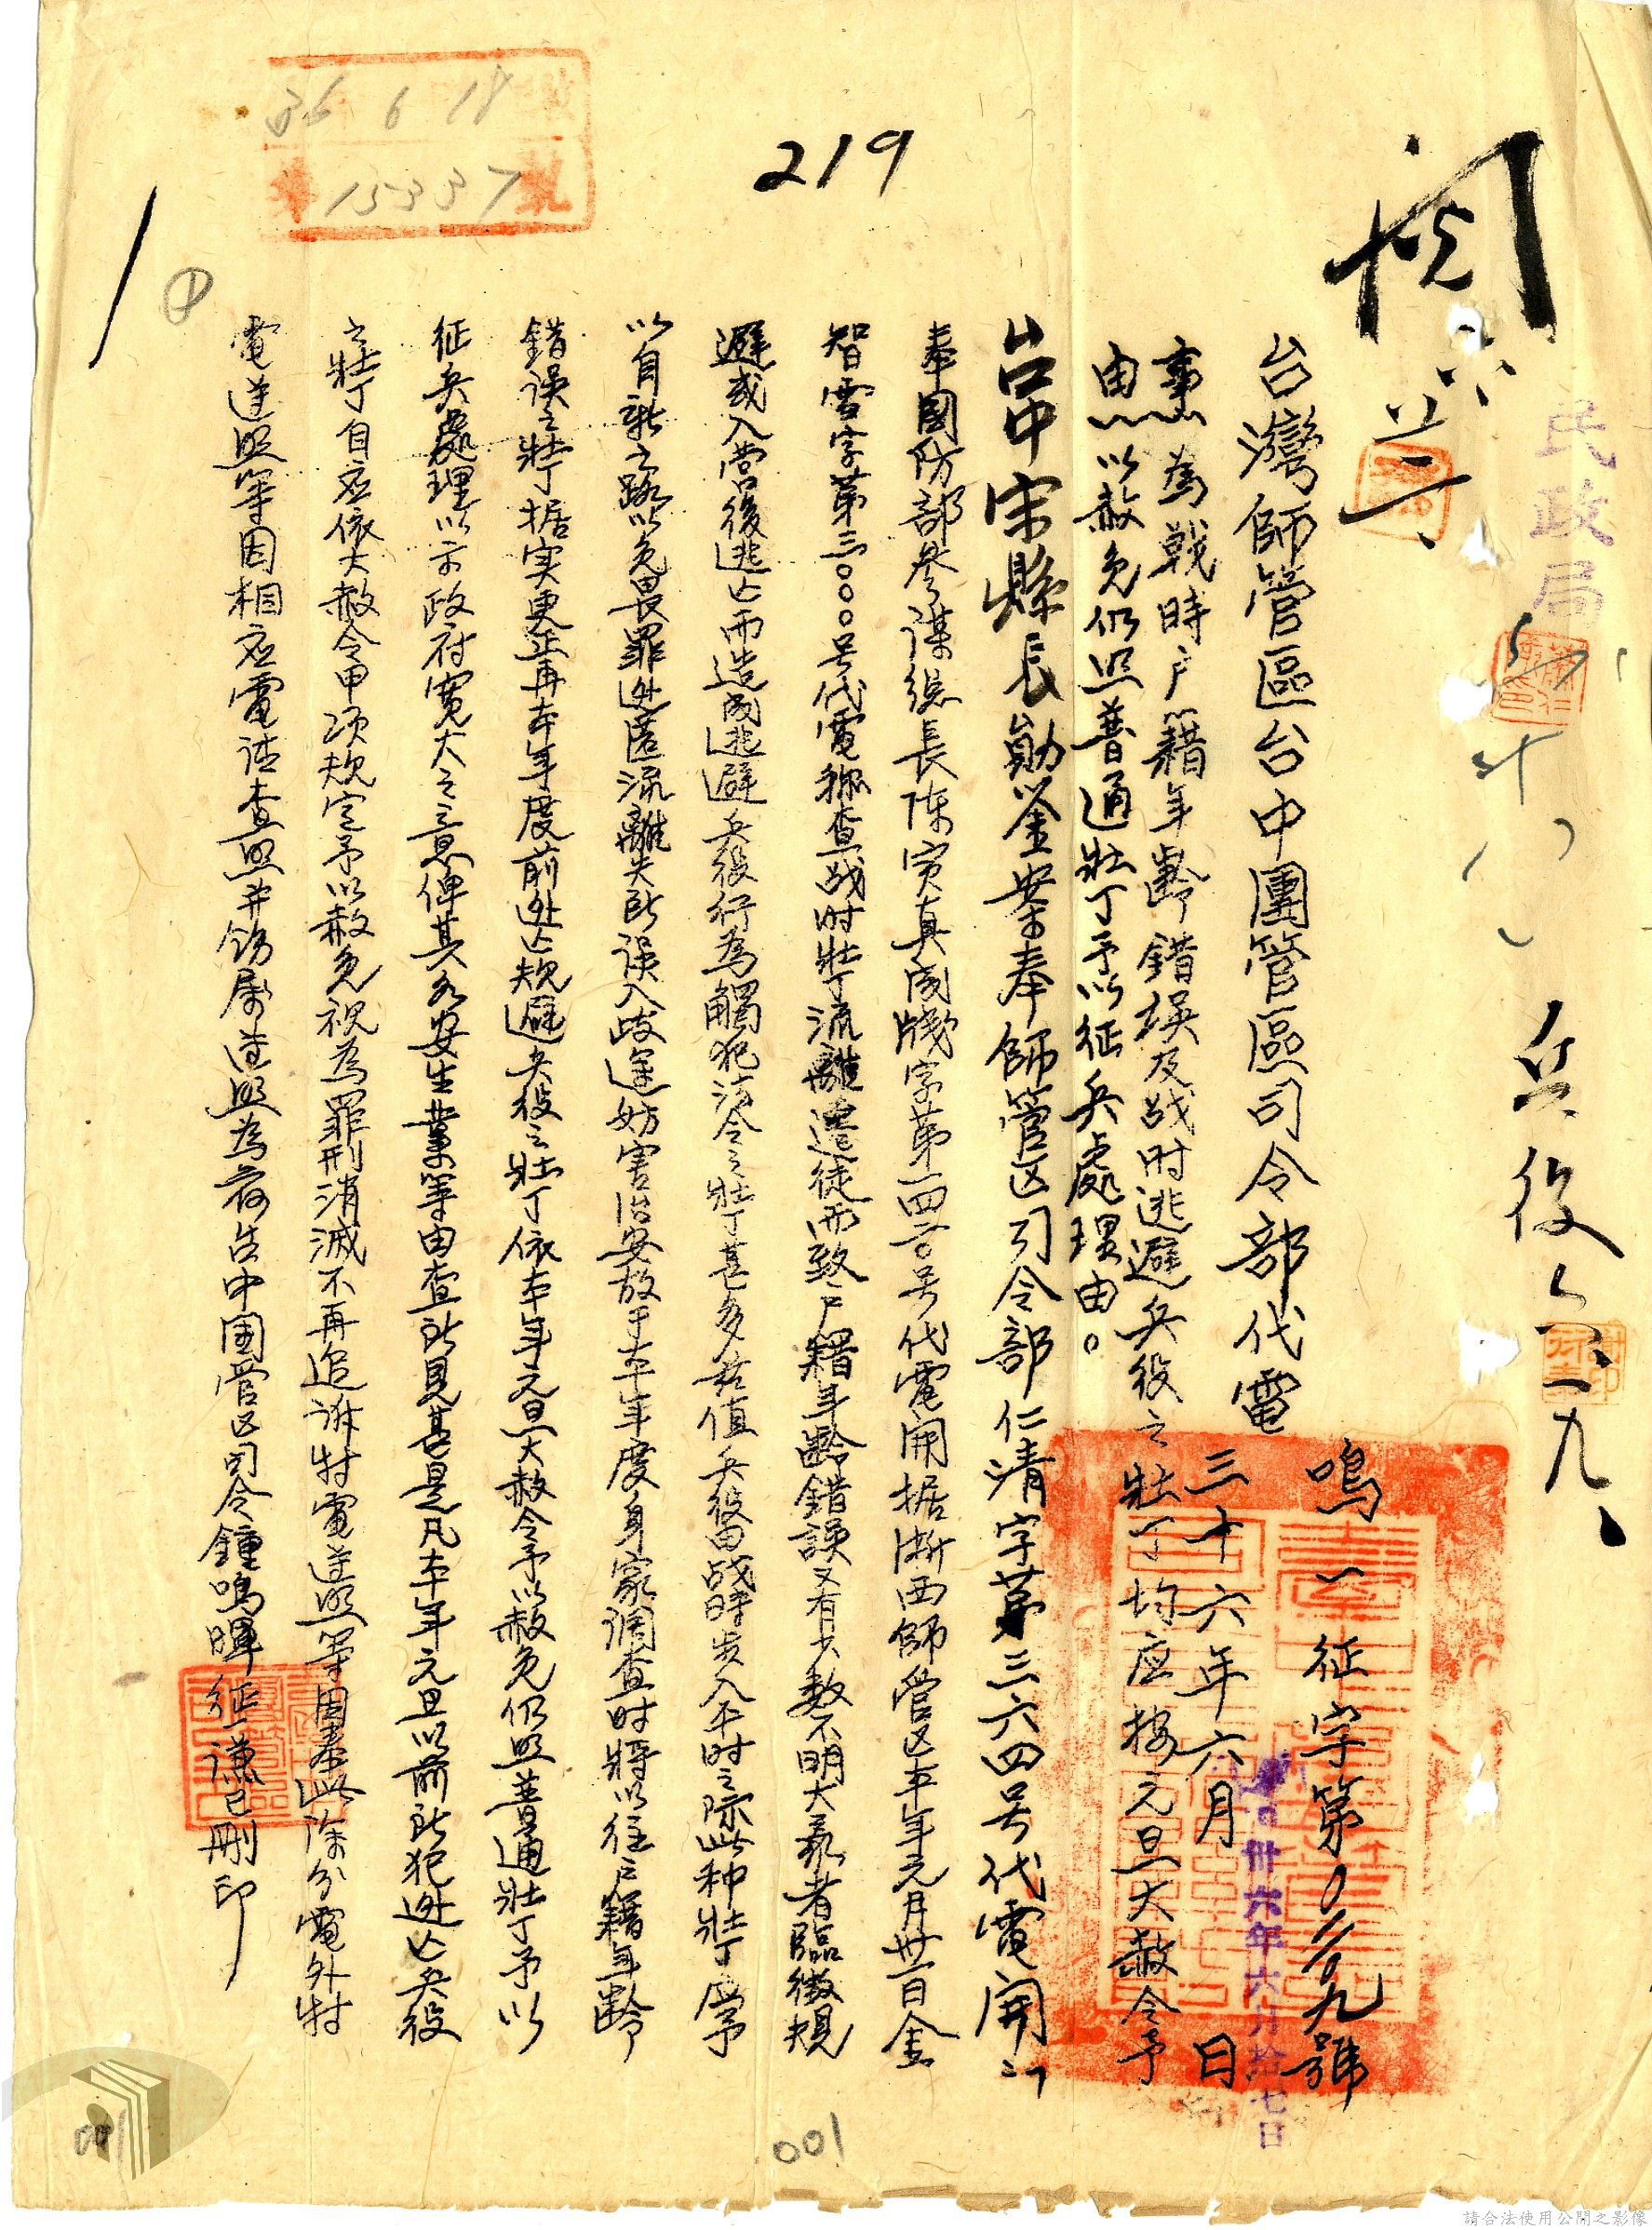 219
36 6 18
15337
民政局
兵役 六、一九、
閱
台灣師管區台中團管區司令部代電
鳴一征字第0二二0九號
三十六年六月 日
卅六年六月拾七日
事為戰時户籍年齡錯誤及战时逃避兵役之壮丁均应按元旦大赦令予
由以赦免仍照普通壮丁予以征兵處理由。
台中宋縣長勛鉴案奉師管区司令部仁清字第三六四号代電開：「
奉國防部參謀總長陈寅真成機字第一四二〇号代電開据浙西師管区本年元月卅一日金
智雪字第三〇〇〇号代電称查战时壮丁流離遷徒而致户籍年齡錯誤又有少数不明大義者臨徵規
避或入营後逃亡而造成逃避兵役行為觸犯法令之壮丁甚多茲值兵役由战時步入平时之际此种壮丁應予
以自新之路以免畏罪逃匿流離失所误入歧途妨害治安故于本年度身家調查时将以往户籍年齡
錯误之壮丁据实更正再本年度前逃亡規避兵役之壮丁依本年元旦大赦令予以赦免仍照普通壮丁予以
征兵處理以示政府寛大之意俾其各安生業等由查所見甚是凡本年元旦以前所犯逃亡兵役
之壮丁自应依大赦令甲项規定予以赦免視為罪刑消滅不再追訴特電遵照等因奉此除分電外特
電遵照等因相应電请查照并飭属遵照為荷台中團管区司令鍾鳴暉征謙已刪印
①
001
001
請合法使用公開之影像